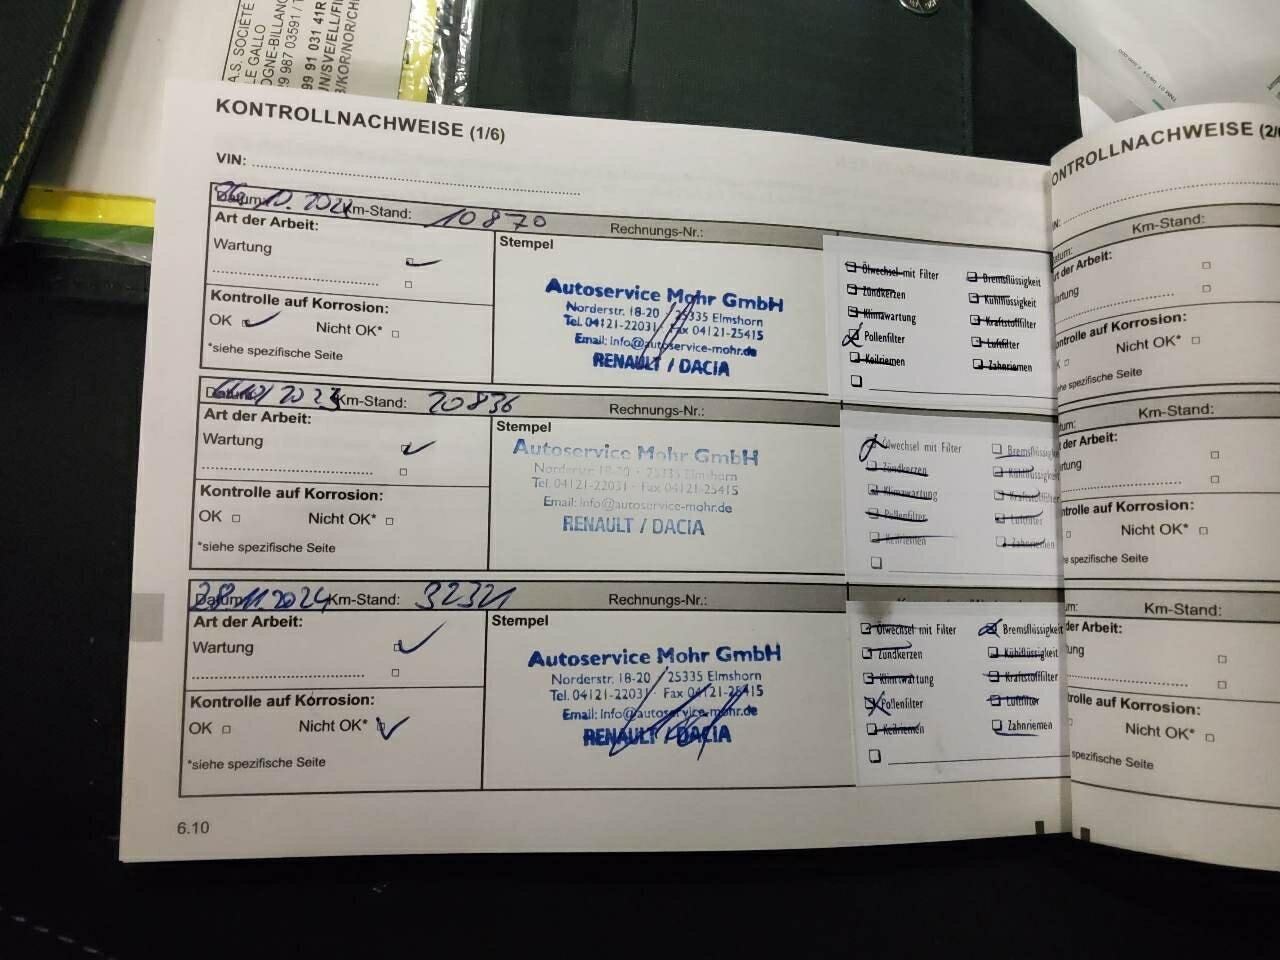 A.S. SOCIÉTÉ
LE GALLO
OGNE-BILLANC
29 987 03591 / T
99 91 031 41R
N/SVE/ELL/FI
B/KOR/NOR/CH
KONTROLLNACHWEISE (1/6)
VIN:
Datum: Km-Stand: 10870 Rechnungs-Nr.:
Art der Arbeit:
Wartung
Kontrolle auf Korrosion:
OK Nicht OK*
*siehe spezifische Seite
Stempel
Autoservice Mohr GmbH
Norderstr. 18-20 · 25335 Elmshorn
Tel. 04121-22031 · Fax 04121-25415
Email: info@autoservice-mohr.de
RENAULT / DACIA
Ölwechsel mit Filter Bremsflüssigkeit
Zündkerzen Kühlflüssigkeit
Klimawartung Kraftstofffilter
Pollenfilter Luftfilter
Keilriemen Zahnriemen
Datum: 2023 Km-Stand: 20836 Rechnungs-Nr.:
Art der Arbeit:
Wartung
Kontrolle auf Korrosion:
OK Nicht OK*
*siehe spezifische Seite
Stempel
Autoservice Mohr GmbH
Norderstr. 18-20 · 25335 Elmshorn
Tel. 04121-22031 · Fax 04121-25415
Email: info@autoservice-mohr.de
RENAULT / DACIA
Ölwechsel mit Filter Bremsflüssigk
Zündkerzen Kühlflüssigke
Klimawartung Kraftstofffilter
Pollenfilter Luftfilter
Keilriemen Zahnriemen
Datum: 28.11.2024 Km-Stand: 32321 Rechnungs-Nr.:
Art der Arbeit:
Wartung
Kontrolle auf Korrosion:
OK Nicht OK*
*siehe spezifische Seite
Stempel
Autoservice Mohr GmbH
Norderstr. 18-20 · 25335 Elmshorn
Tel. 04121-22031 · Fax 04121-25415
Email: info@autoservice-mohr.de
RENAULT / DACIA
Ölwechsel mit Filter Bremsflüssigkeit
Zündkerzen Kühlflüssigkeit
Klimawartung Kraftstofffilter
Pollenfilter Luftfilter
Keilriemen Zahnriemen
6.10
ONTROLLNACHWEISE (2/
N:
atum: Km-Stand:
rt der Arbeit:
artung
ontrolle auf Korrosion:
K Nicht OK*
he spezifische Seite
tum: Km-Stand:
der Arbeit:
rtung
ntrolle auf Korrosion:
Nicht OK*
he spezifische Seite
m: Km-Stand:
der Arbeit:
ung
rolle auf Korrosion:
Nicht OK*
spezifische Seite